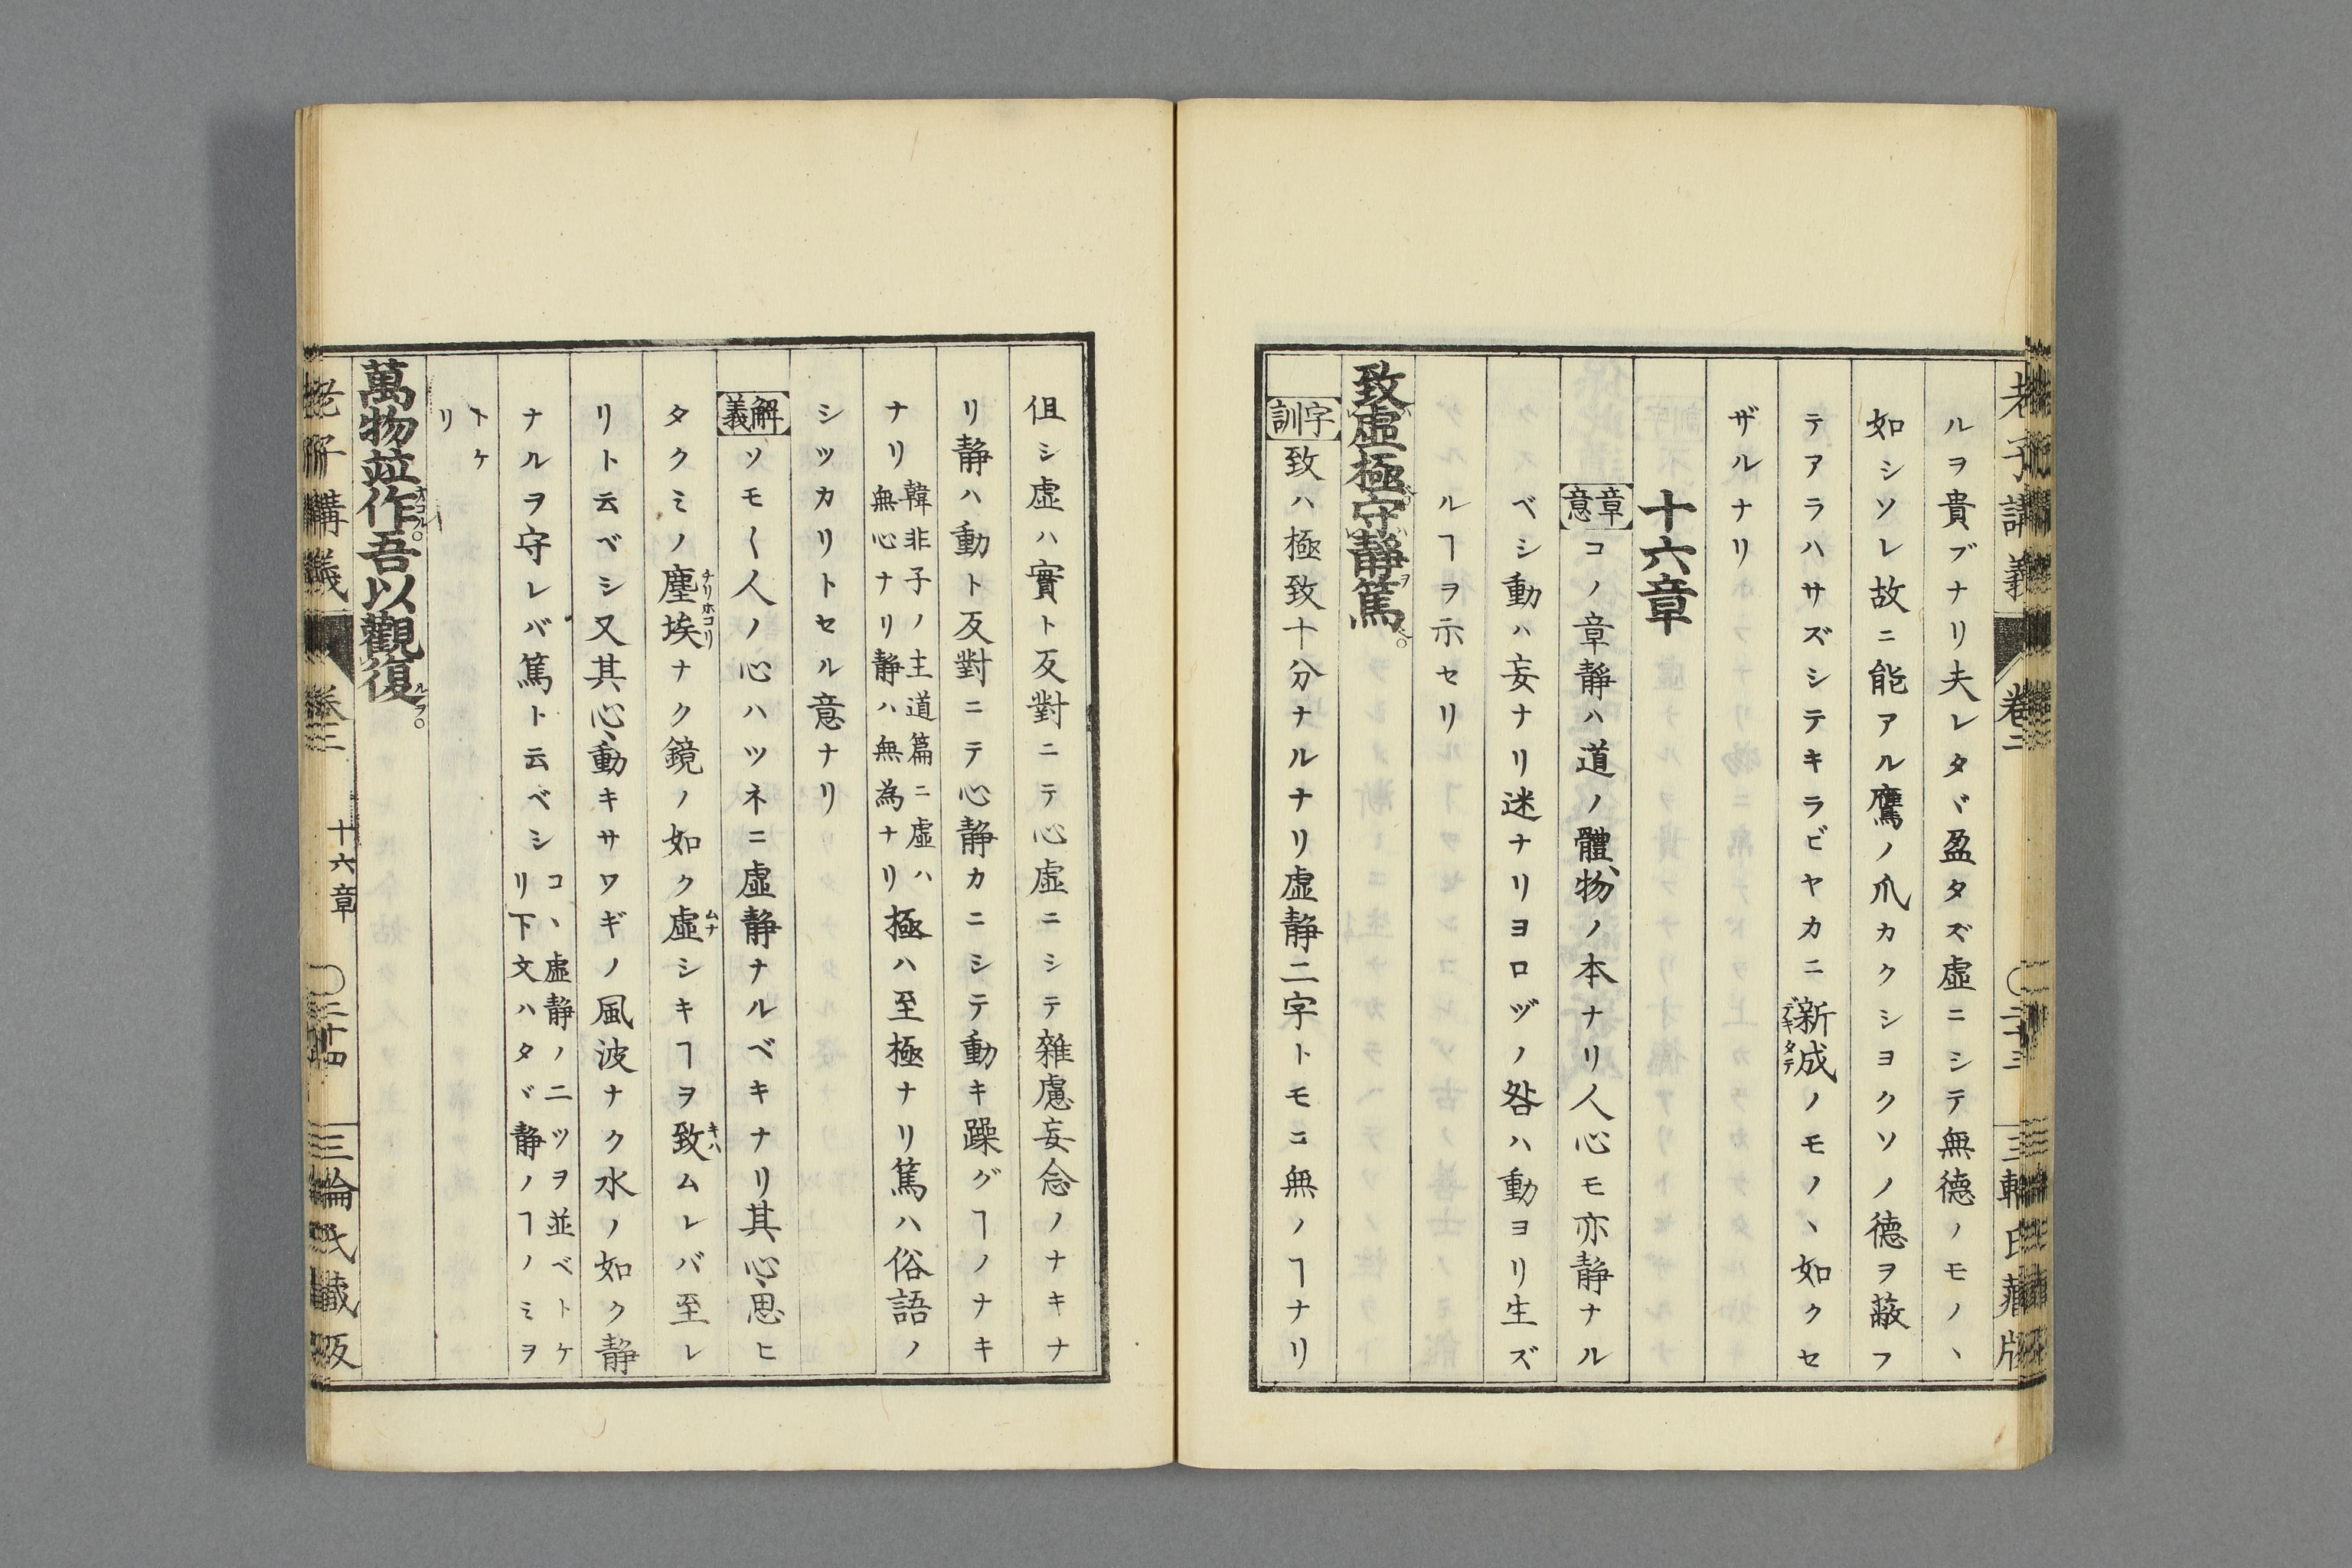 ルヲ貴ブナリ夫レタヾ盈タズ虛ニシテ無德ノモノヽ
如シソレ故ニ能アル鷹ノ爪カクシヨクソノ德ヲ蔽フ
テアラハサズシテキラビヤカニ新成ノモノヽ如クセ
デキタテ
ザルナリ
十六章
章意 コノ章靜ハ道ノ體、物ノ本ナリ人心モ亦静ナル
ベシ動ハ妄ナリ迷ナリヨロヅノ咎ハ動ヨリ生ズ
ルヿヲ示セリ
致虛極守靜篤。
字訓 致ハ極致十分ナルナリ虛静二字トモニ無ノヿナリ
伹シ虛ハ實ト反對ニテ心虛ニシテ雜慮妄念ノナキナ
リ静ハ動ト反對ニテ心静カニシテ動キ躁グヿノナキ
ナリ 韓非子ノ主道篇ニ虛ハ
無心ナリ静ハ無為ナリ 極ハ至極ナリ篤ハ俗語ノ
シツカリトセル意ナリ
解義 ソモ〱人ノ心ハツネニ虛静ナルベキナリ其心、思ヒ
タクミノ塵埃ナク鏡ノ如ク虛シキヿヲ致ムレバ至レ
チリホコリ ムナ キハ
リト云ベシ又其心、動キサワギノ風波ナク水ノ如ク静
ナルヲ守レバ篤ト云ベシ コヽ虛静ノ二ツヲ並ベトケ
リ下文ハタヾ静ノヿノミヲ
トケ
リ
萬物竝作。吾以觀復。
オコル ルヲ
老子講義 卷二 十六章 二十四 三輪氏藏版